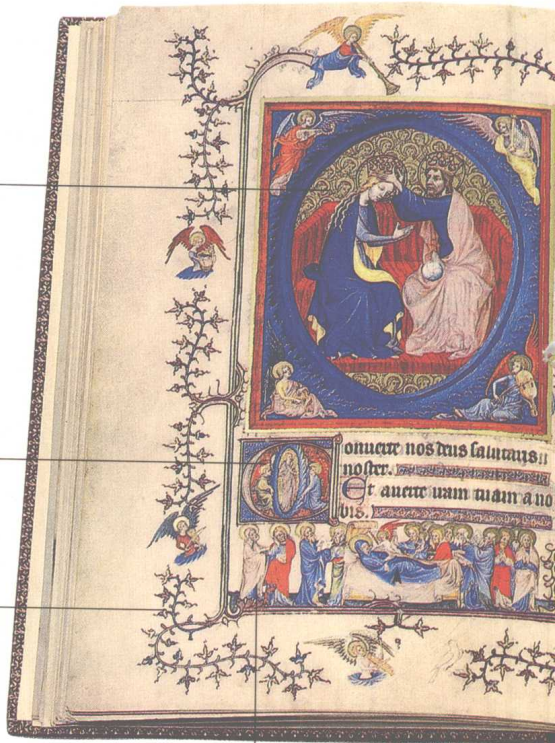 Conuerte nos deus salutaris
noster.
Et auerte iram tuam a no
bis.